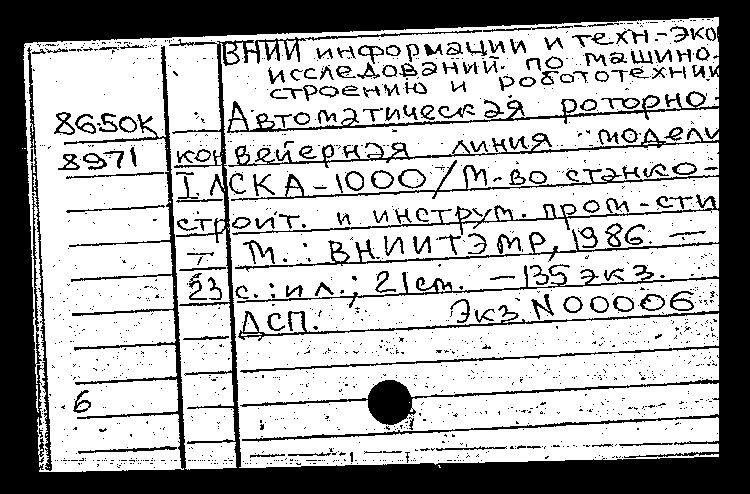 ВНИИ информации и техн.-эко
исследований по машино-
строению и робототехник
86-50К Автоматическая роторно-
8971 конвейерная линия модели
ІЛСКА-1000/М-во станко-
строит. и инструм. пром-сти
— М.: ВНИИТЭМР, 1986. —
23 с.: ил.; 21 см. — 135 экз.
ДСП. Экз. N 00006
6